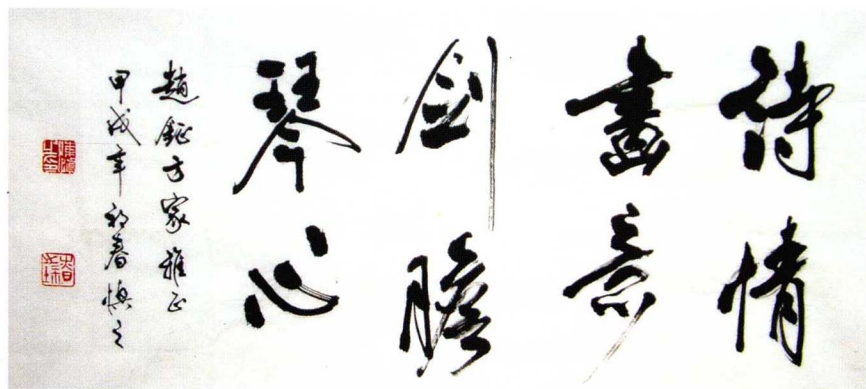 詩情
畫意
劍膽
琴心
趙鉦方家雅正
甲戌年初春慎之